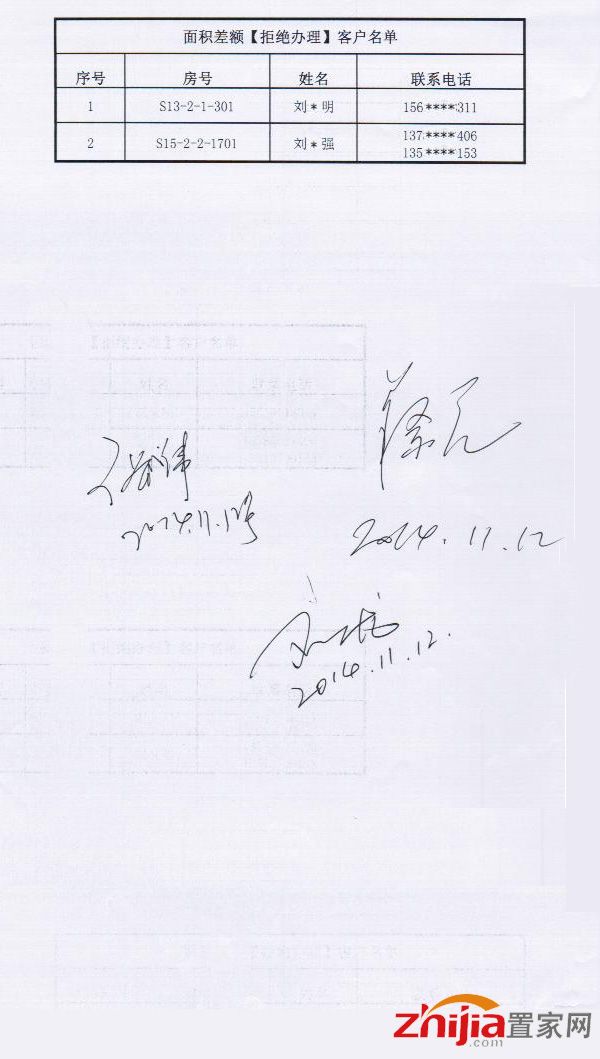 面积差额【拒绝办理】客户名单
序号 房号 姓名 联系电话
1 S13-2-1-301 刘*明 156****311
2 S15-2-2-1701 刘*强 137****406
135****153
2014.11.12号
2014.11.12
2014.11.12.
zhijia置家网
.com